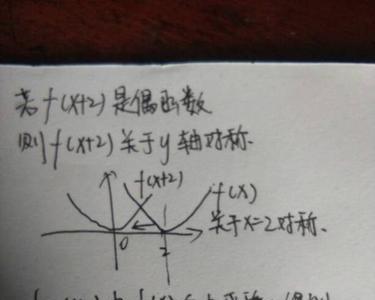 若f(x+2)是偶函数
则f(x+2)关于y轴对称.
f(x+2)
f(x)
关于x=2对称、
0
2